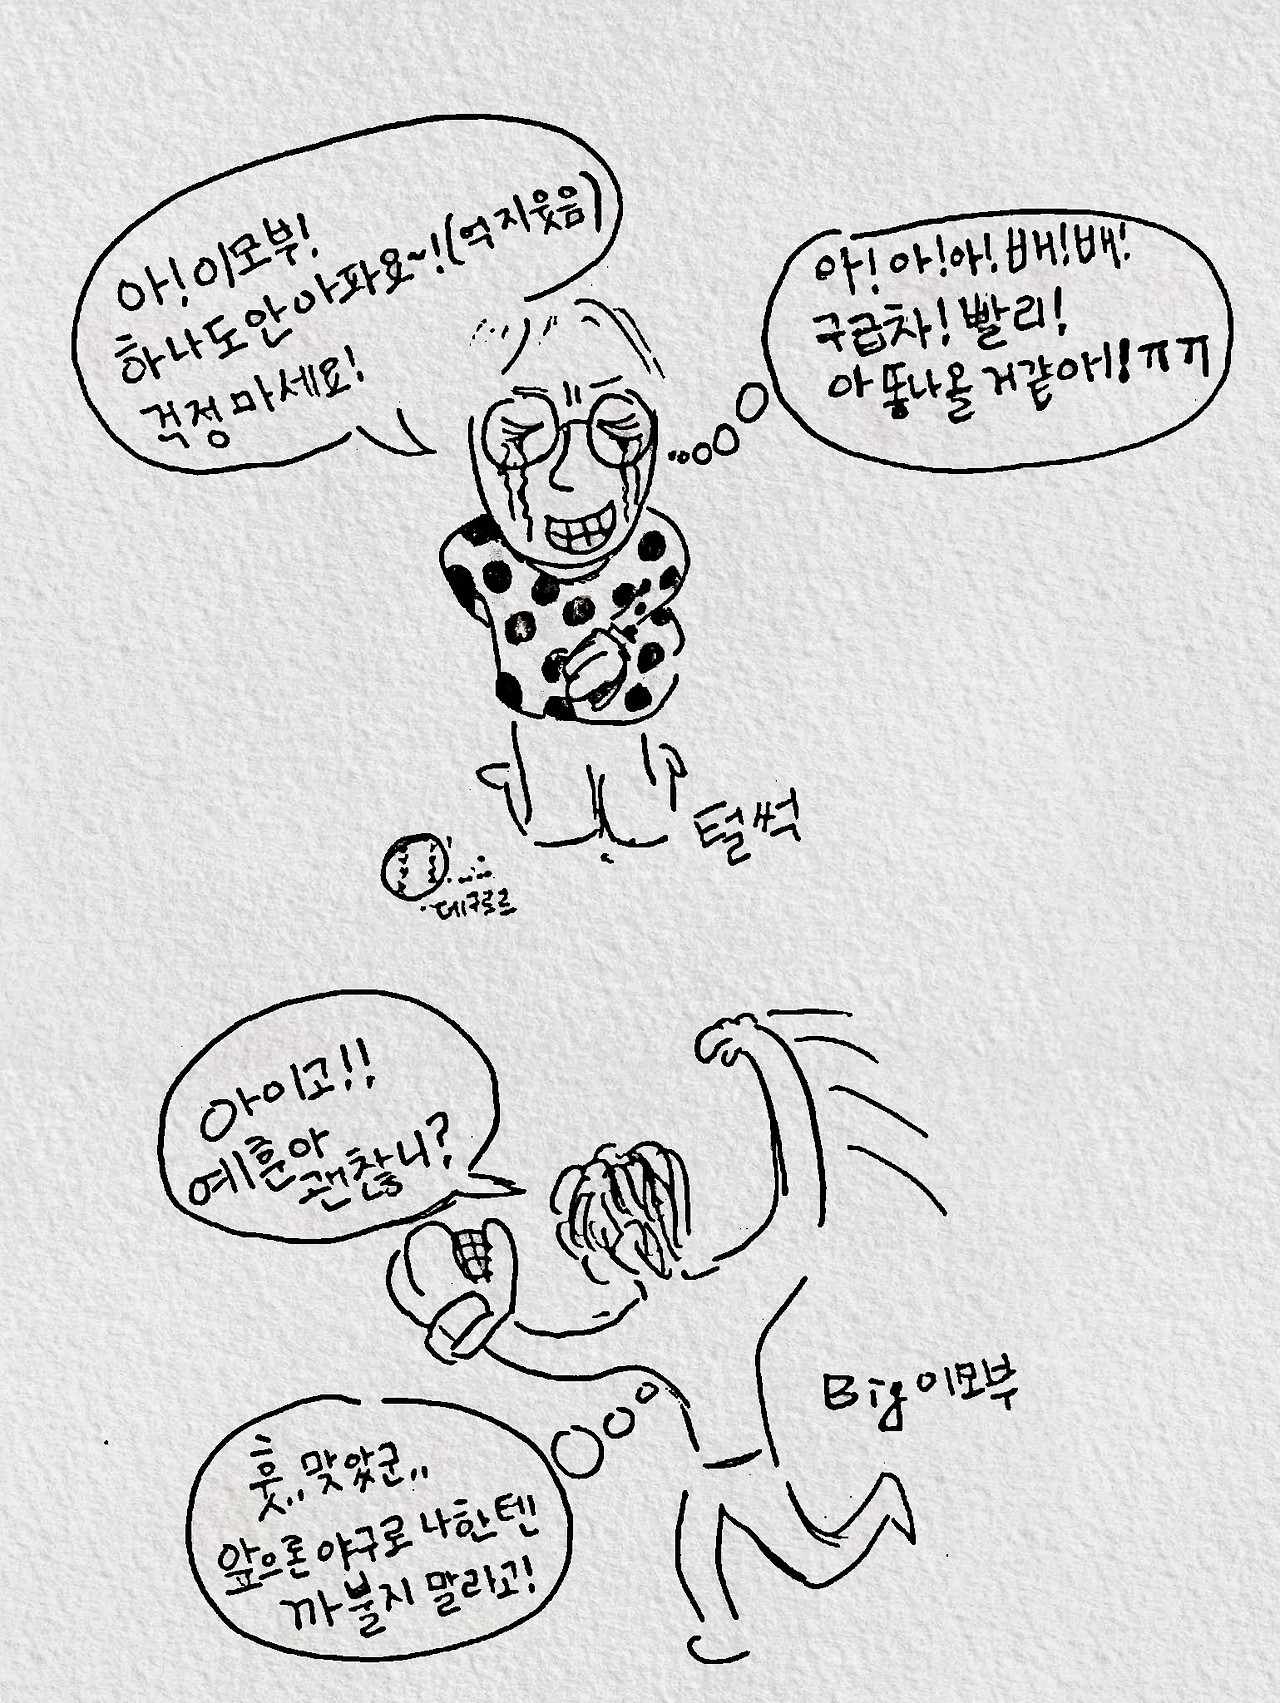 아! 이모부!
하나도 안 아파요~!(억지웃음)
걱정 마세요!
아! 아!아! 배!배!
구급차! 빨리!
아 똥나올 거같아!! ㅠㅠ
털썩
데구르르
아이고!!
예훈아
괜찮니?
Big 이모부
훗,, 맞았군,,
앞으론 야구로 나한텐
까불지 말라고!